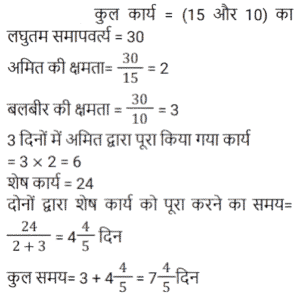 कुल कार्य = (15 और 10) का
लघुतम समापवर्त्य = 30
अमित की क्षमता= 30/15 = 2
बलबीर की क्षमता = 30/10 = 3
3 दिनों में अमित द्वारा पूरा किया गया कार्य
= 3 × 2 = 6
शेष कार्य = 24
दोनों द्वारा शेष कार्य को पूरा करने का समय=
24/(2 + 3) = 4 4/5 दिन
कुल समय= 3 + 4 4/5 = 7 4/5 दिन